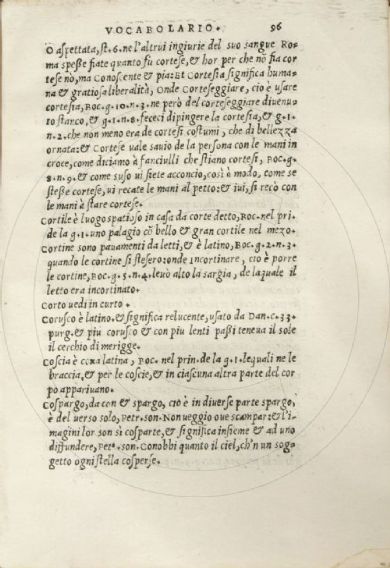 VOCABOLARIO. 96
O aspettata, st.6. ne l'altrui ingiurie del suo sangue Ro=
ma spesse fiate quanto fu cortese, & hor per che nō fia cor
tese nò, ma Conoscente & pia: Et Cortesia significa huma=
na & gratiosa liberalità, Onde Corteseggiare, ciò è usare
cortesia, Boc. g. 10. n. 3. ne però del corteseggiare diuenu=
to stanco, & g. 1. n. 8. fececi dipingere la cortesia, & g. 1.
n. 2. che non meno era de cortesi costumi, che di bellezza
ornata: & Cortese uale sauio de la persona con le mani in
croce, come diciamo à fanciulli che stiano cortesi, Boc. g.
8. n. 9. & come suso ui siete acconcio, così à modo, come se
stesse cortese, ui recate le mani al petto: & iui, si recò con
le mani à stare cortese.
Cortile è luogo spatioso in casa da corte detto, Boc. nel pri.
de la g. 1. uno palagio cō bello & gran cortile nel mezo.
Cortine sono pauamenti da letti, & è latino, Boc. g. 2. n. 3.
quando le cortine si stesero: onde Incortinare, ciò è porre
le cortine, Boc. g. 5. n. 4. leuò alto la sargia, de la quale il
letto era incortinato.
Corto uedi in curto.
Corusco è latino, & significa relucente, usato da Dan. c. 33.
purg. & piu corusco & con piu lenti passi teneua il sole
il cerchio di merigge.
Coscia è coxa latina, Boc. nel prin. de la g. 1. lequali ne le
braccia, & per le coscie, & in ciascuna altra parte del cor
po appariuano.
Cospargo, da con & spargo, ciò è in diuerse parte spargo,
è del uerso solo, Petr. son. Non ueggio oue scampar: & l'i=
magini lor son sì cosparte, & significa insieme & ad uno
diffundere, Petr. son. Conobbi quanto il ciel, ch'n un sog=
getto ogni stella cosperse.